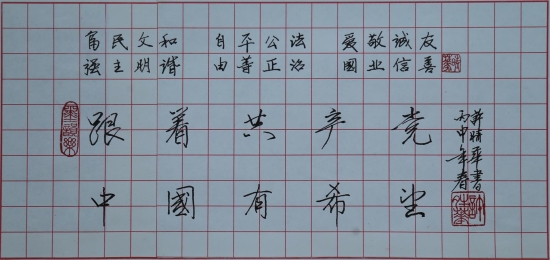 富 民 文 和 自 平 公 法 爱 敬 诚 友
强 主 明 谐 由 等 正 治 國 业 信 善
跟 着 共 产 党
中 國 有 希 望
丙申年春
許晴華書